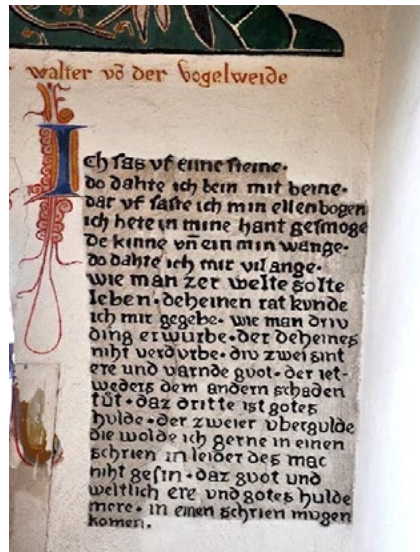 walter vō der vogelweide
Ich sas vf eime steine·
do dahte ich bein mit beine·
dar vf saste ich min ellenbogen
ich hete in mine hant gesmoge
de kinne vn̄ ein min wange·
do dahte ich mir vil ange·
wie man zer welte solte
leben· deheinen rat kvnde
ich mir gegebe· wie man driv
ding erwurbe· der deheines
niht verdvrbe· div zwei sint
ere und varnde gvot· der iet-
weders dem andern schaden
tůt· daz dritte ist gotes
hulde· der zweier vbergulde
die wolde ich gerne in einen
schrien in leider des mac
niht gesin· daz gvot und
weltlich ere vnd gotes hulde
mere· in einen schrien mvgen
komen.